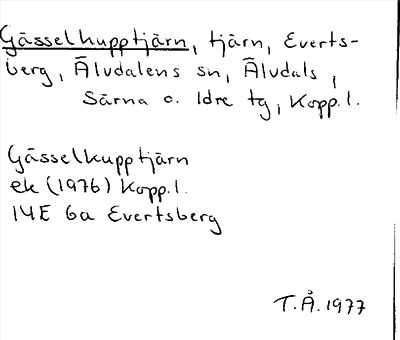 Gässelkupptjärn, tjärn, Everts-
berg, Älvdalens sn, Älvdals,
Särna o. Idre tg, Kopp.l.
Gässelkupptjärn
ek (1976) Kopp.l.
14E 6a Evertsberg
T.Å. 1977